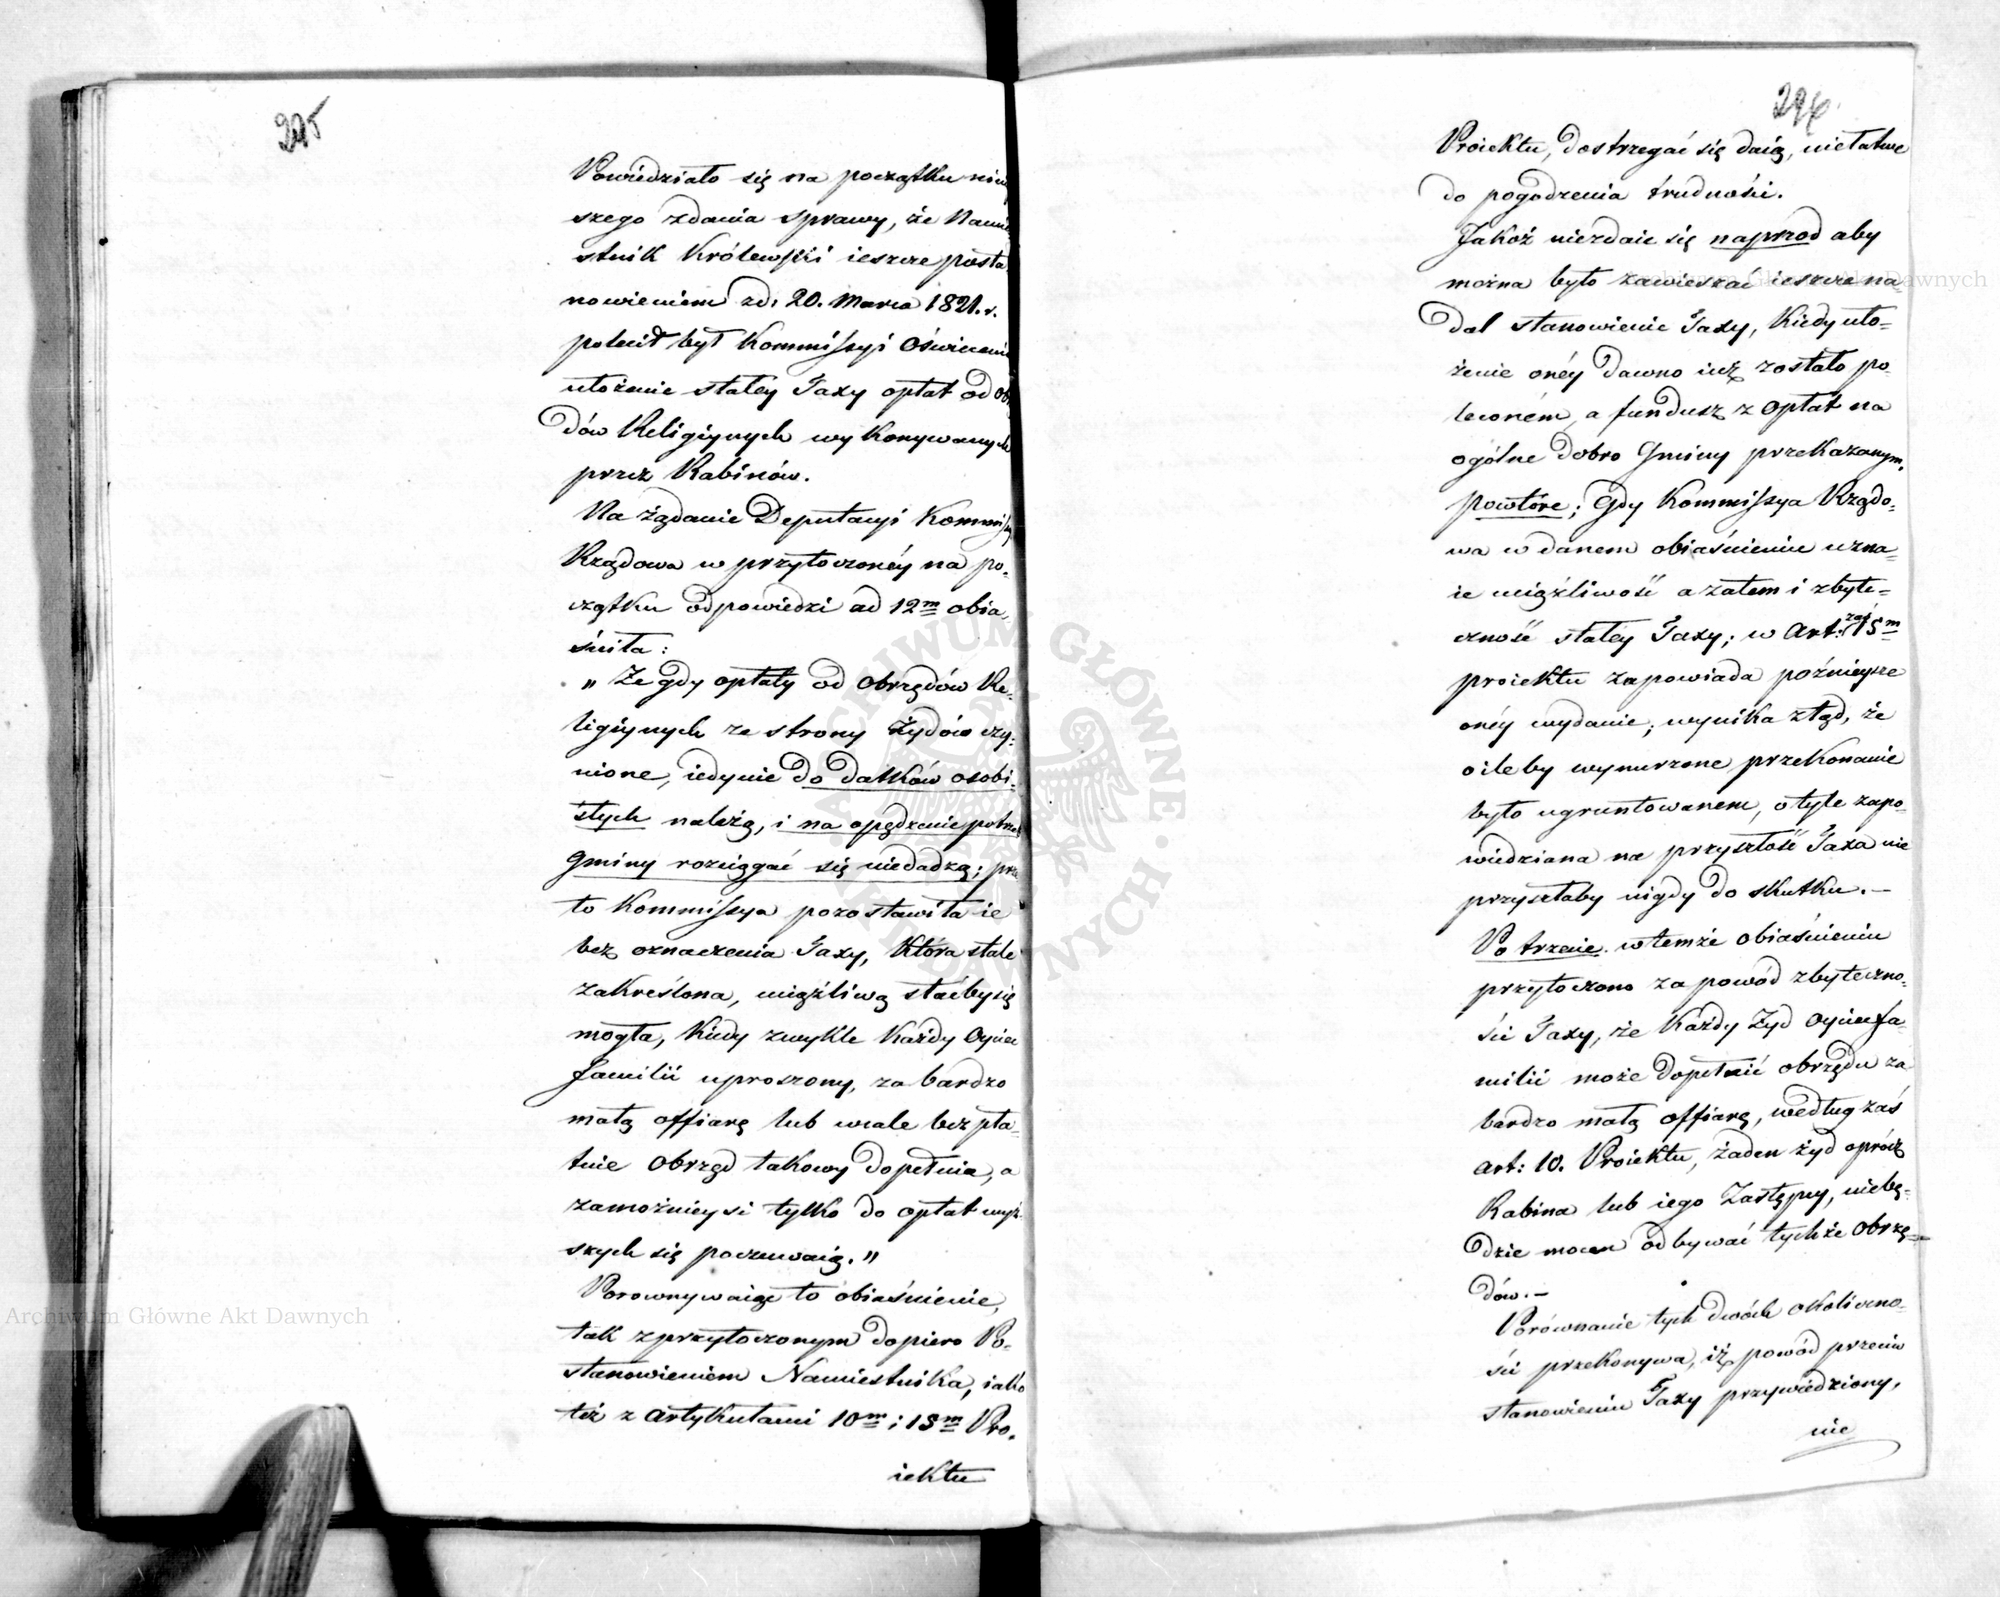 295
Powiedziało się na początku niniey
szego zdania sprawy, że Namie
stnik Królewski ieszcze posta
nowieniem zd: 20. Marca 1821. r.
polecił był Kommissyi Oświecenia
ułożenie stałey Taxy opłat od ob
dów Religiynych wykonywanych
przez Rabinów.
Na żądanie Deputacyi Kommissya
Rządowa w przytoczonéy na po-
czątku odpowiedzi ad 12m obia,
śniła:
„ Że gdy opłaty od Obrzędów Re-
ligiynych ze strony Żydów czy-
nione, iedynie do datków osobi-
stych należą, i na opędzenie potrzeb
Gminy rozciągać się niedadzą; prze
to Kommissya pozostawiła ie
bez oznaczenia Taxy, Która stale
zakreślona, uciążliwą staćby się
mogła, Kiedy zwykle Każdy Oyciec
familii uproszony, za bardzo
małą offiarę lub wcale bezpła-
tnie Obrzęd takowy dopełnia, a
zamożnieysi tylko do opłat wyż-
szych się poczuwaią. „
Porownywaiąc to obiaśnienie,
tak z przytoczonym dopiero Po-
stanowieniem Namiestnika, iako
też z Artykułami 10m i 15m Pro-
iektu
296.
Proiektu, dostrzegać się daią, niełatwe
do pogodzenia trudności.
Jakoż niezdaie się naprzod aby
można było zawieszać ieszcze na
dal stanowienie Taxy, Kiedy uło-
żenie onéy dawno iuż zostało po-
leconém, a fundusz z Opłat na
ogólne dobro Gminy przekazanym,
powtóre; Gdy Kommissya Rządo-
wa w danem obiaśnieniu uzna-
ie uciążliwość a zatem i zbyte-
czność stałéy Taxy; w Art: zaś 15m
proiektu zapowiada poźnieysze
onéy wydanie, wynika ztąd, że
oileby wynurzone przekonanie
było ugruntowanem, otyle zapo-
wiedziana na przyszłość Taxa nie
przyszłaby nigdy do skutku. –
Po trzecie. w temże obiaśnieniu
przytoczono za powód zbyteczno-
ści Taxy, że Każdy Żyd Oyciec fa-
milii może dopełnić obrzędu za
bardzo małą offiarę, według zaś
Art: 10. Proiektu, żaden żyd oprócz
Rabina lub iego Zastępcy, niebę-
dzie mocen odbywać tychże Obrzę-
dów. –
Porównanie tych dwóch okoliczno-
ści przekonywa, iż powód przeciw
stanowieniu Taxy przywiedziony,
nie
Archiwum Główne Akt Dawnych
Archiwum Główne Akt Dawnych
ARCHIWUM GŁÓWNE AKT DAWNYCH